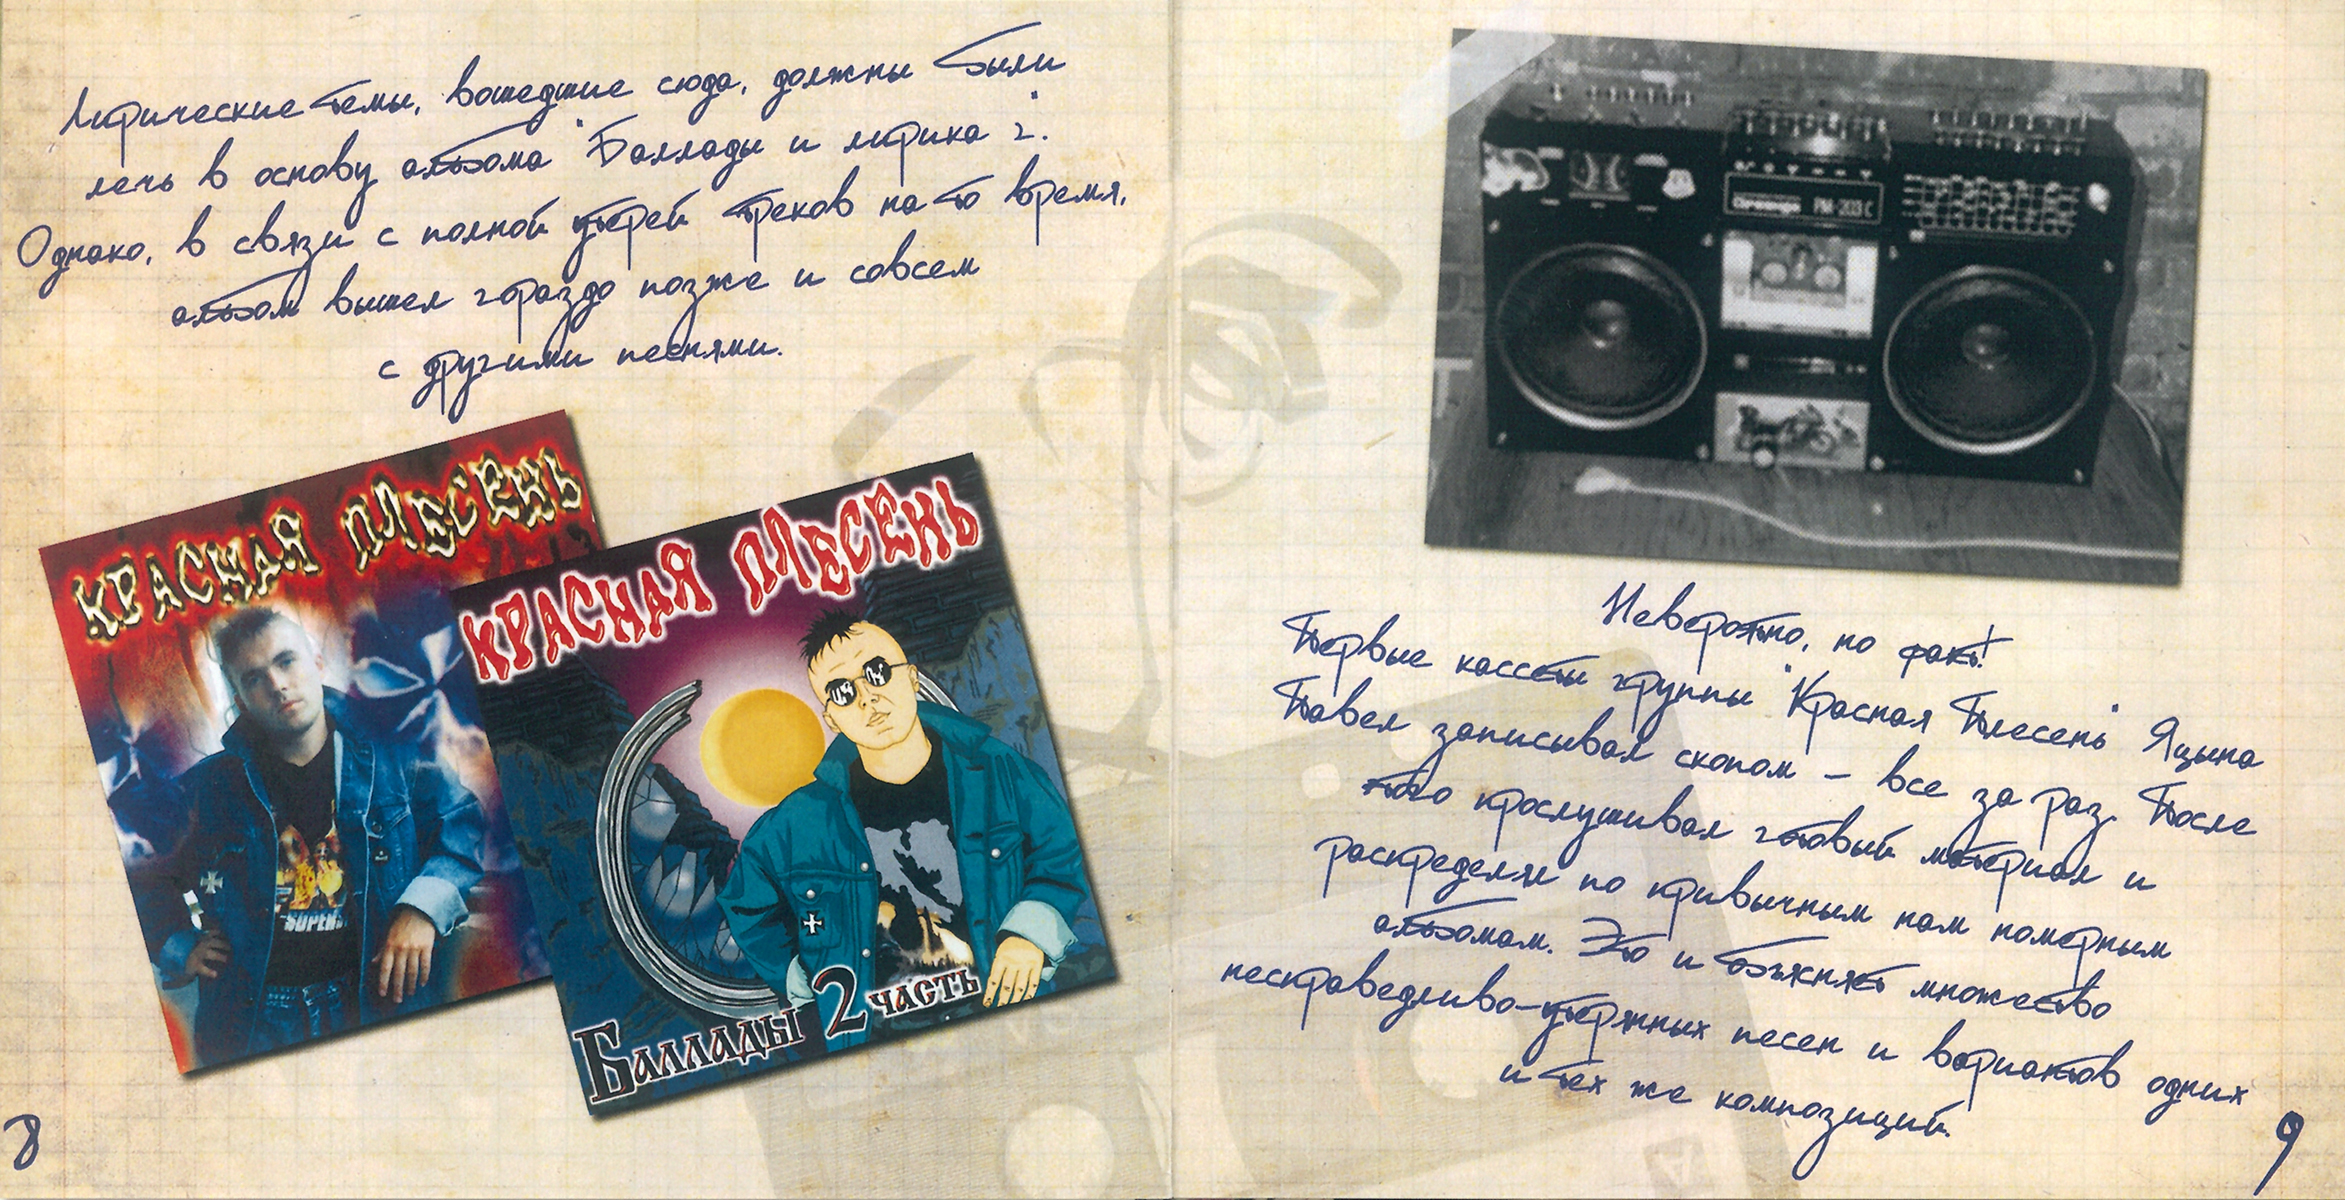 Лирические темы, вошедшие сюда, должны были
лечь в основу альбома "Баллады и лирика 2".
Однако, в связи с полной утерей треков на то время,
альбом вышел гораздо позже и совсем
с другими песнями.
КРАСНАЯ ПЛЕСЕНЬ
SUPER
КРАСНАЯ ПЛЕСЕНЬ
Баллады 2 часть
8
РМ-203 С
Невероятно, но факт!
Первые кассеты группы "Красная Плесень" Яцына
Павел записывал скопом - все за раз. После
того прослушивал готовый материал и
распределял по привычным нам номерным
альбомам. Это и объясняет множество
несправедливо-утерянных песен и вариантов одних
и тех же композиций.
9